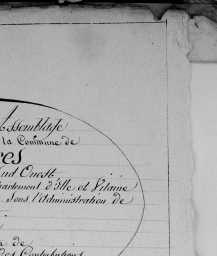 Assemblage
la Commune de
res
Sud Ouest
artement d'Ille et Vilaine
sous l'Administration de
de
des Contributions